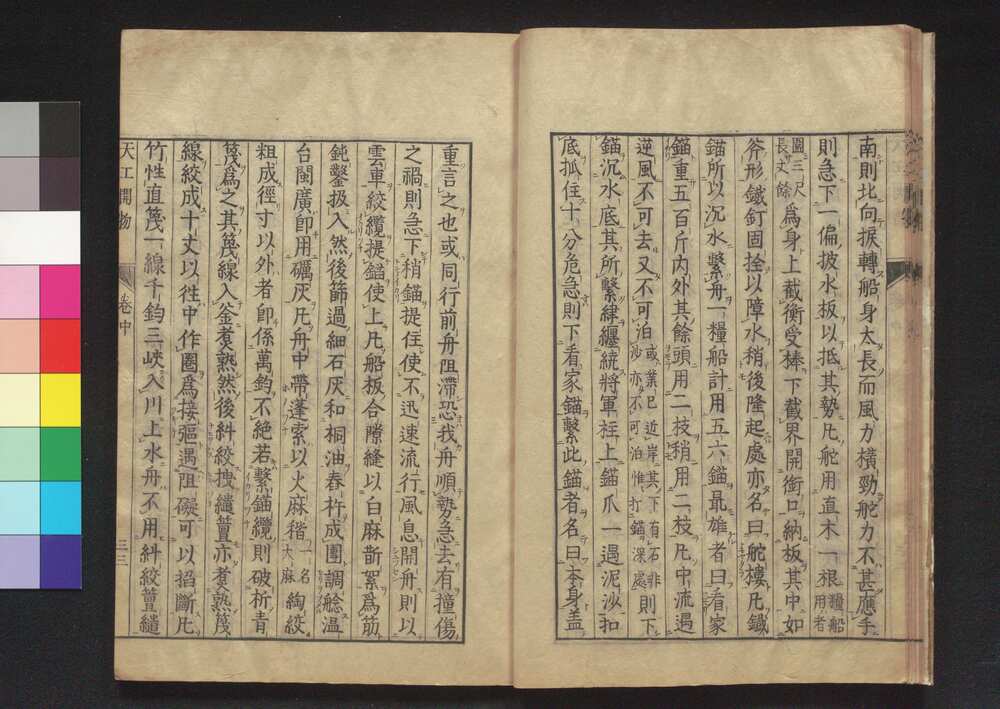 南則北向捩轉船身太長而風力橫勁舵力不甚應手
則急下一偏披水板以抵其勢凡舵用直木一根糧船用者
圍三尺長丈餘爲身上截衡受棒下截界開銜口納板其中如
斧形鐵釘固拴以障水稍後隆起處亦名曰舵樓凡鐵
錨所以沉水繫舟一糧船計用五六錨最雄者曰看家
錨重五百斤內外其餘頭用二枝稍用二枝凡中流遇
逆風不可去又不可泊或業已近岸其下有石非沙亦不可泊惟打錨深處則下
錨沉水底其所繫𦄂纏統將軍柱上錨爪一遇泥沙扣
底抓住十分危急則下看家錨繫此錨者名曰本身蓋
重言之也或同行前舟阻滯恐我舟順勢急去有撞傷
之禍則急下稍錨提住使不迅速流行風息開舟則以
雲車絞纜提錨使上凡船板合隙縫以白麻斮絮爲筋
鈍鑿扱入然後篩過細石灰和桐油舂杵成團調艌温
台閩廣卽用礪灰凡舟中帶蓬索以火麻稭一名大麻綯絞
粗成徑寸以外者卽係萬鈞不絕若繫錨纜則破析青
篾爲之其篾線入釜煮熟然後糾絞拽繾𥲤亦煮熟篾
線絞成十丈以徃中作圈爲接彄遇阻礙可以掐斷凡
竹性直篾一線千鈞三峽入川上水舟不用糾絞𥲤繾
天工開物
卷中
三三